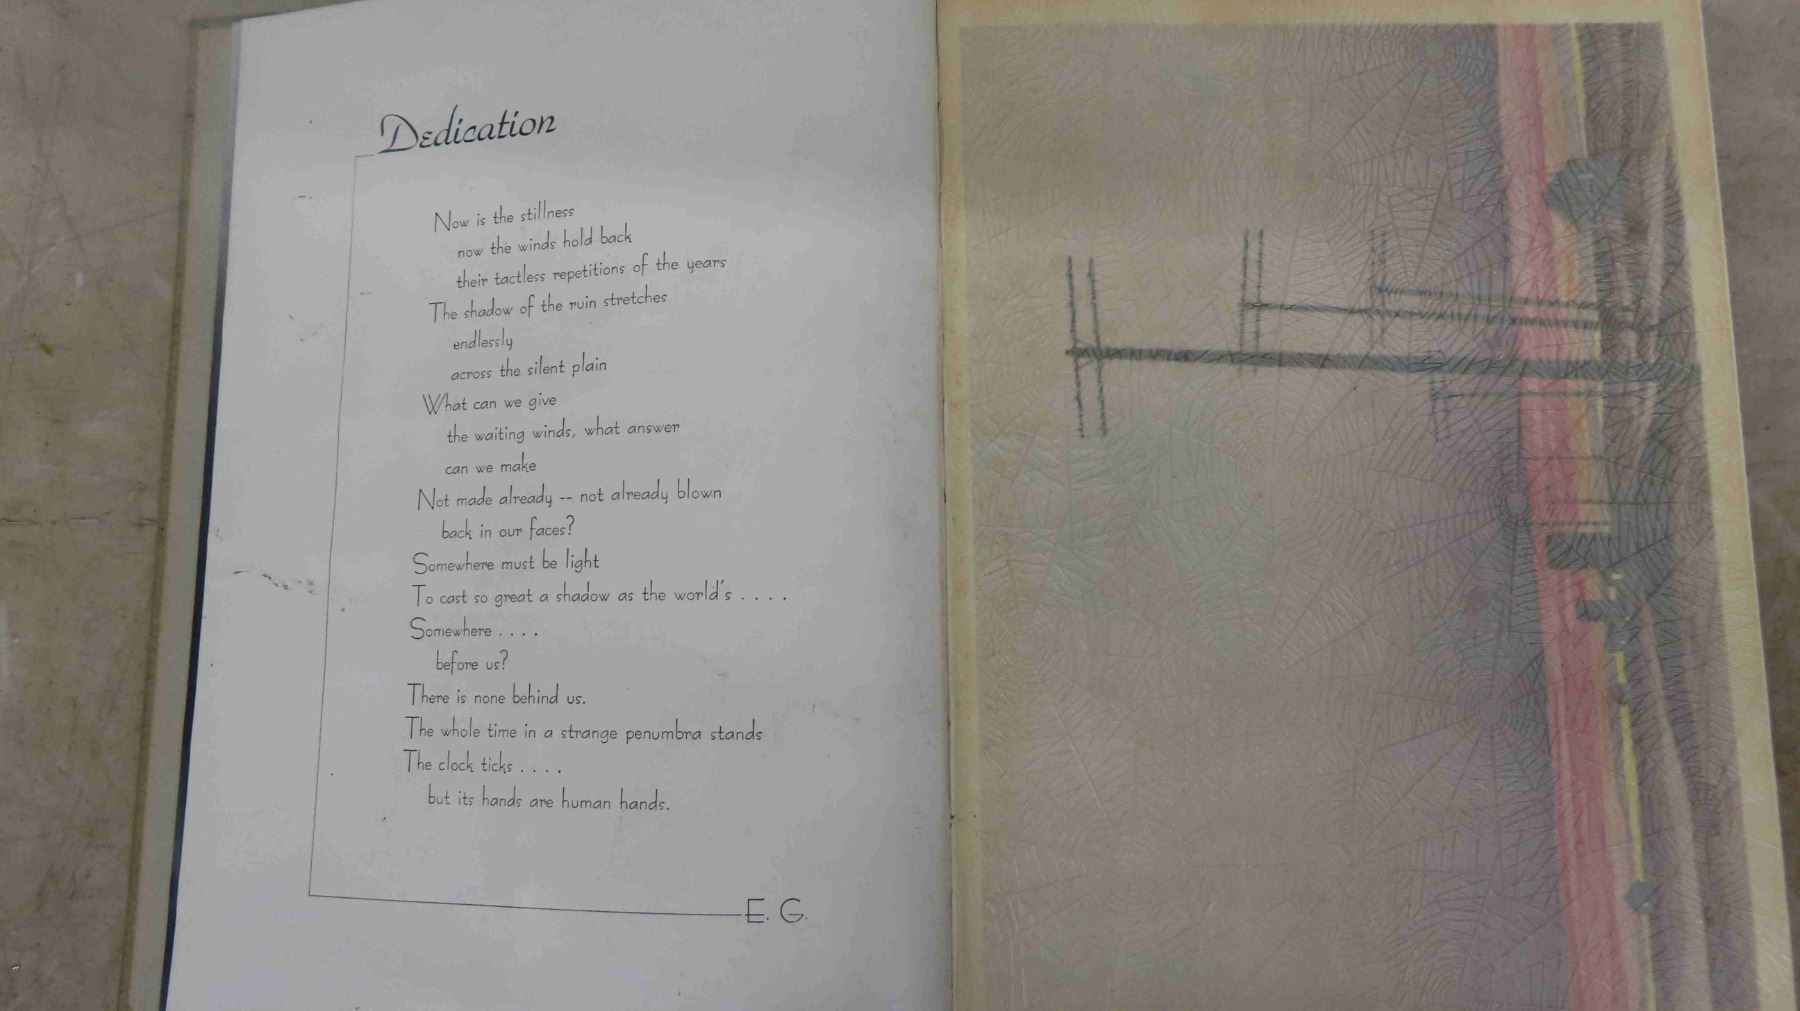 Dedication
Now is the stillness
now the winds hold back
their tactless repetitions of the years
The shadow of the ruin stretches
endlessly
across the silent plain
What can we give
the waiting winds, what answer
can we make
Not made already -- not already blown
back in our faces?
Somewhere must be light
To cast so great a shadow as the world's . . . .
Somewhere . . . .
before us?
There is none behind us.
The whole time in a strange penumbra stands
The clock ticks . . . .
but its hands are human hands.
E. G.